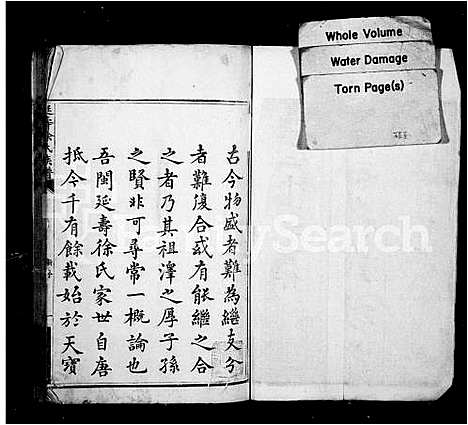 Whole Volume
Water Damage
Torn Page(s)
古今物盛者難為繼支分
者難復合或有能繼之合
之者乃其祖澤之厚子孫
之賢非可尋常一概論也
吾閩延壽徐氏家世自唐
抵今千有餘載始於天寶
FamilySearch